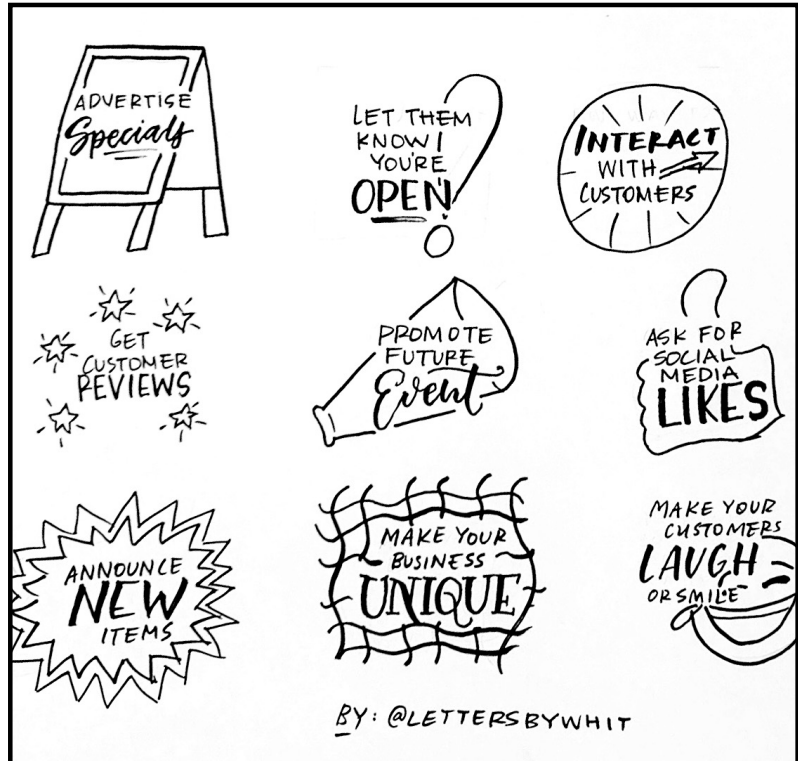 ADVERTISE
Specials
LET THEM
KNOW
YOU'RE
OPEN!
INTERACT
WITH
CUSTOMERS
GET
CUSTOMER
REVIEWS
PROMOTE
FUTURE
Event
ASK FOR
SOCIAL
MEDIA
LIKES
ANNOUNCE
NEW
ITEMS
MAKE YOUR
BUSINESS
UNIQUE
MAKE YOUR
CUSTOMERS
LAUGH
OR SMILE
BY: @LETTERSBYWHIT